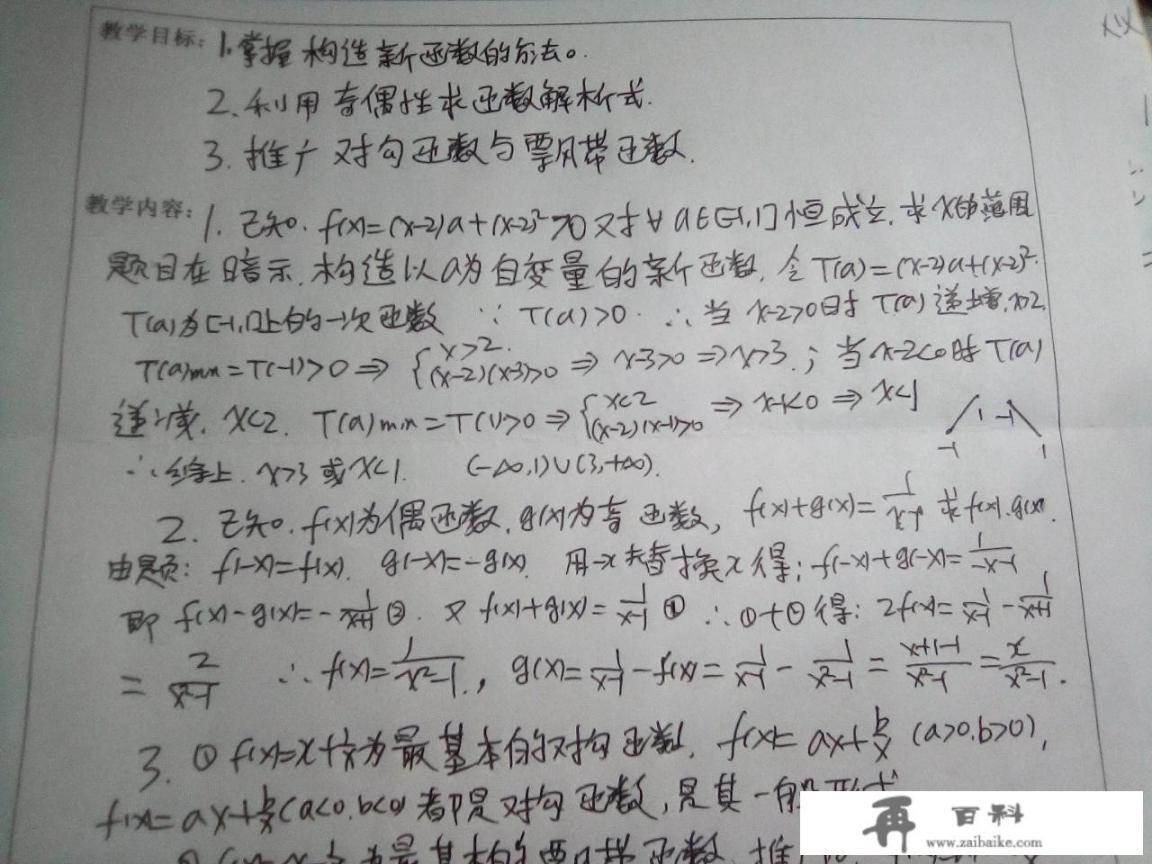 教学目标: 1.掌握构造新函数的方法。
2.利用奇偶性求函数解析式.
3.推广对勾函数与飘带函数.
教学内容: 1.已知. f(x)=(x-2)a+(x-2)²>0 对∀a∈[-1,1]恒成立.求x的范围
题目在暗示.构造以a为自变量的新函数.令T(a)=(x-2)a+(x-2)².
T(a)为[-1,1]上的一次函数 ∵ T(a)>0. ∴当x-2>0时T(a)递增.x>2
T(a)min=T(-1)>0 ⇒ {x>2. (x-2)(x-3)>0 ⇒ x-3>0 ⇒ x>3.; 当x-2<0时T(a)
递减. x<2. T(a)min=T(1)>0 ⇒ {x<2 (x-2)(x-1)>0 ⇒ x-1<0 ⇒ x<1
-1 1 -1 1
∴综上. x>3或x<1. (-∞,1)∪(3,+∞).
2.已知.f(x)为偶函数.g(x)为奇函数, f(x)+g(x)=1/(x-1) 求f(x).g(x).
由题: f(-x)=f(x). g(-x)=-g(x). 用-x去替换x得: f(-x)+g(-x)=1/(-x-1)
即 f(x)-g(x)=-1/(x+1) ②. 又f(x)+g(x)=1/(x-1) ① ∴①+②得: 2f(x)=1/(x-1)-1/(x+1)
=2/(x²-1) ∴f(x)=1/(x²-1)., g(x)=1/(x-1)-f(x)=1/(x-1)-1/(x²-1)=(x+1-1)/(x²-1)=x/(x²-1).
3. ① f(x)=x+1/x为最基本的对勾函数. f(x)=ax+b/x (a>0.b>0),
f(x)=ax+b/x(a<0.b<0)都是对勾函数,是其一般形式
为最基本的飘带函数.推
再 百科
www.zaibaike.com